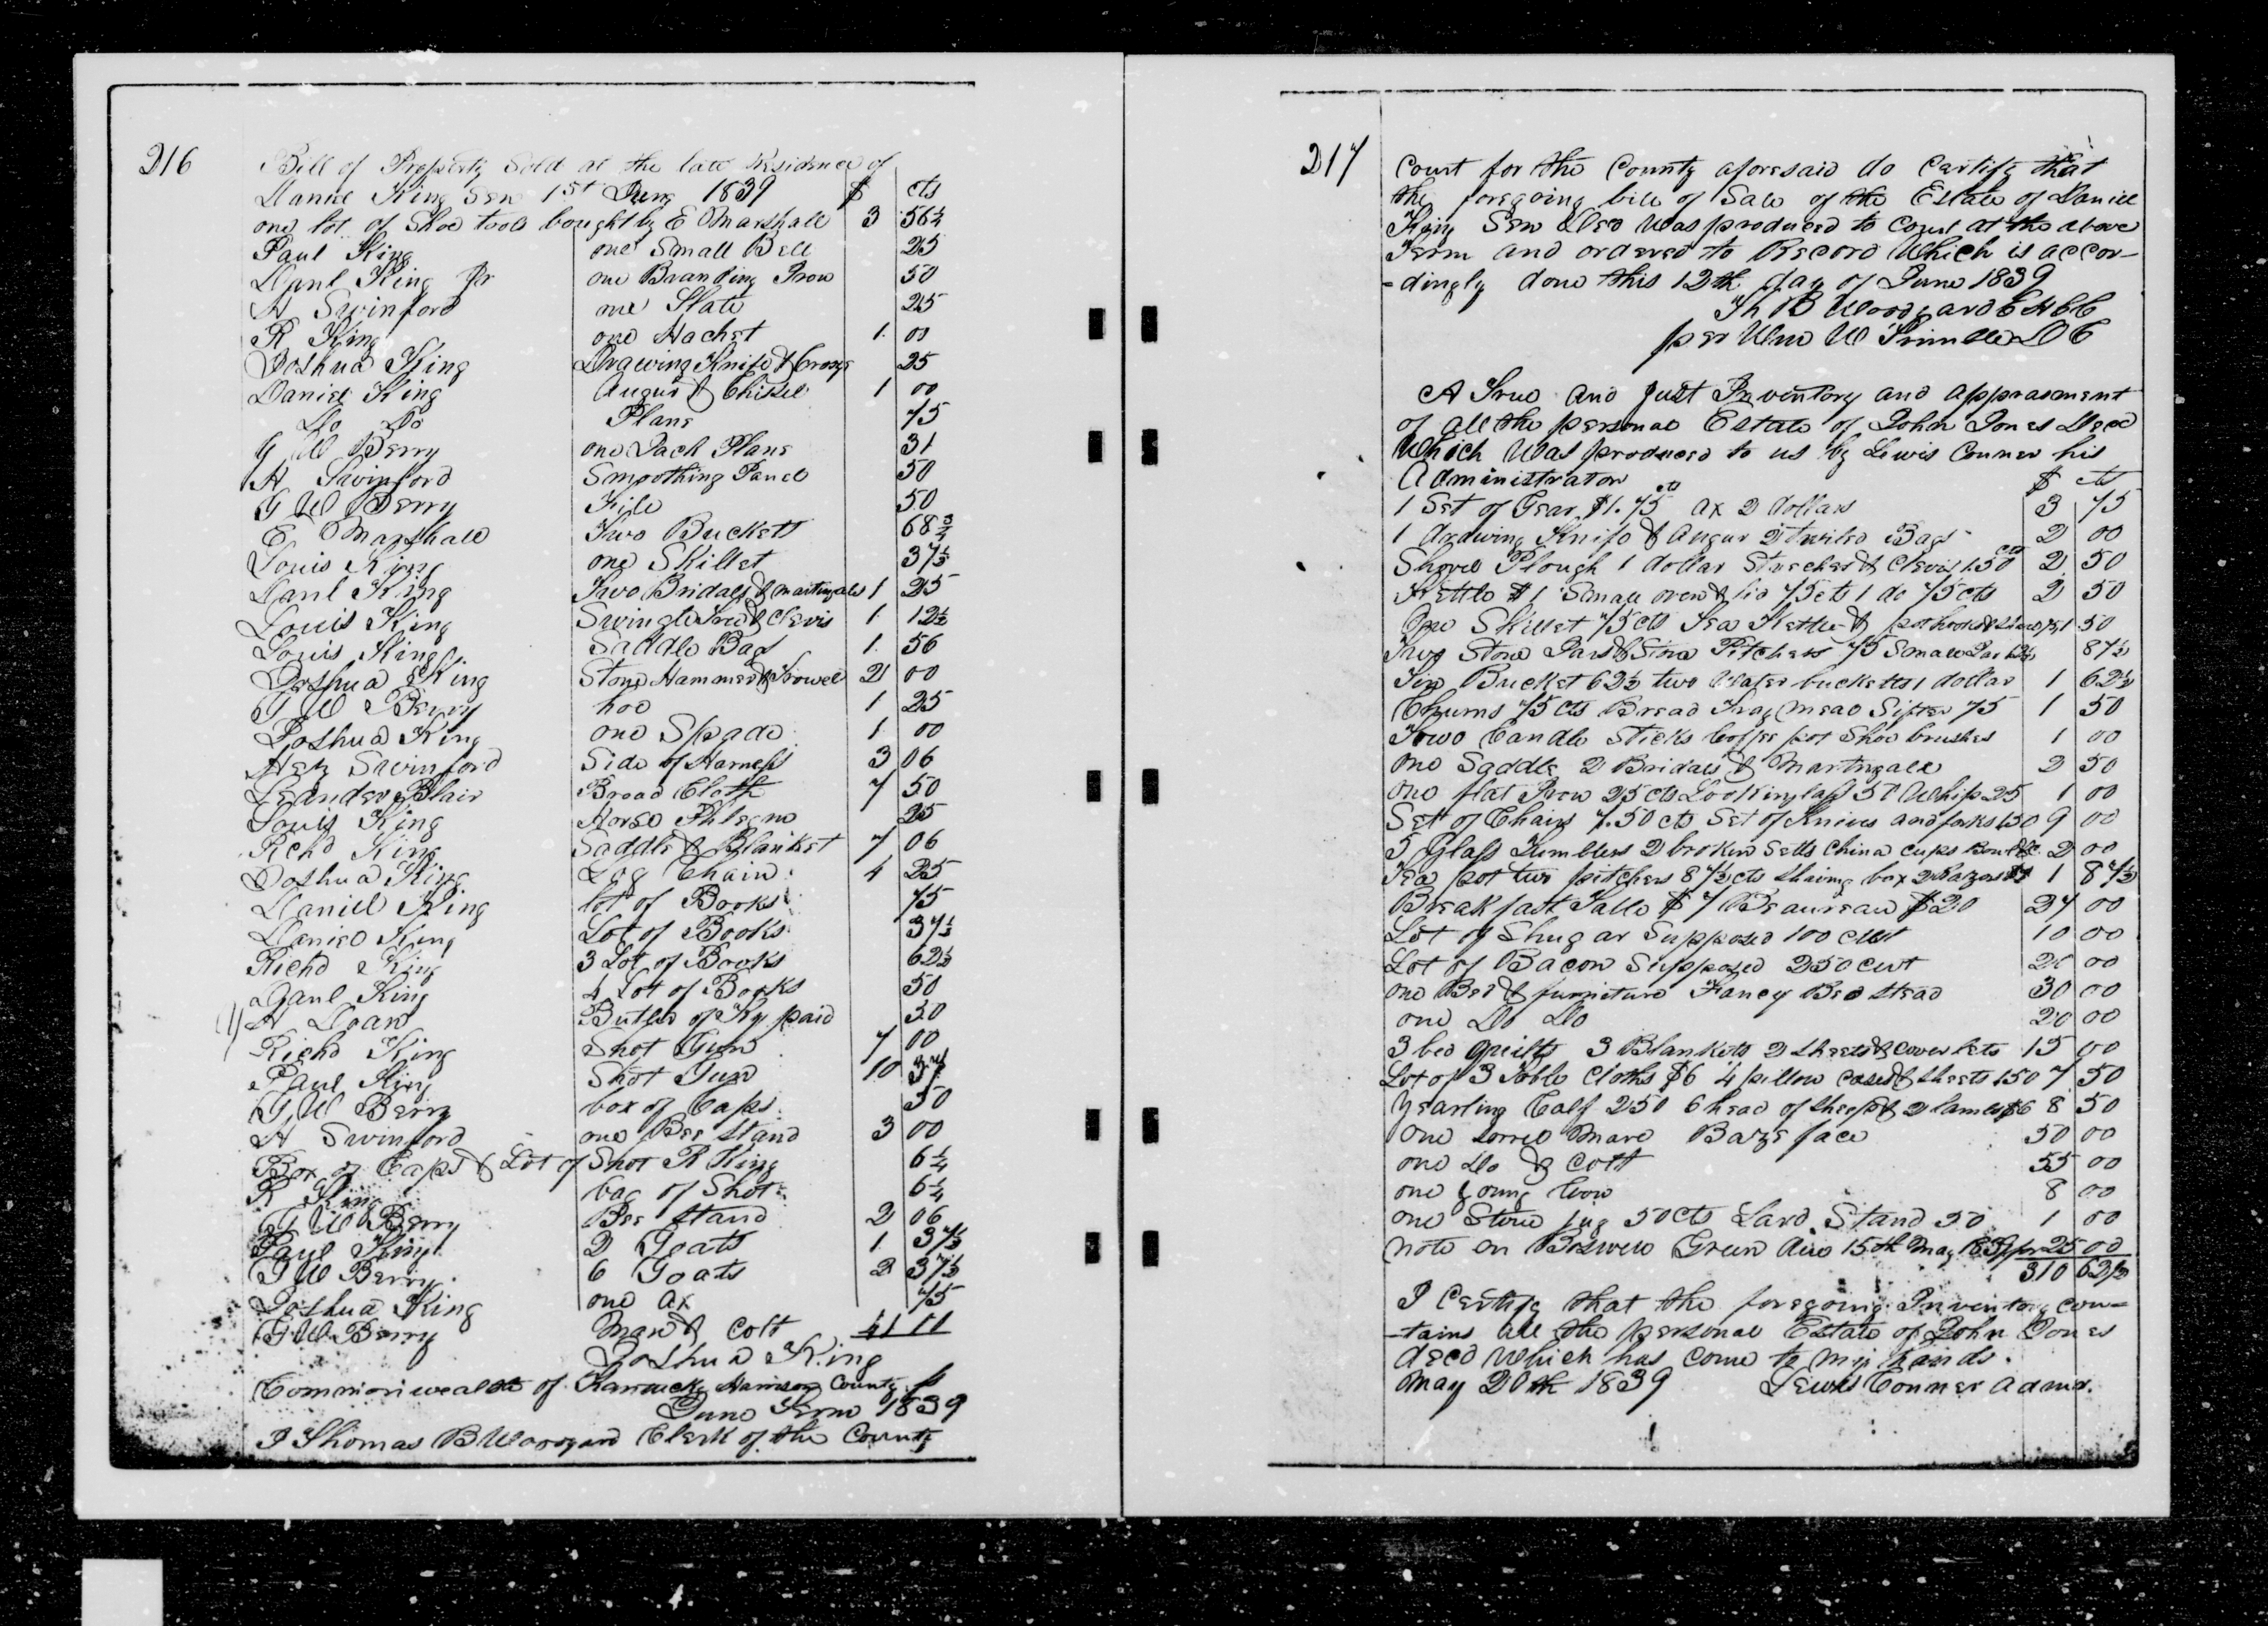 216
Bill of Property Sold at the late Residence of
Daniel King Sen 1st June 1839 $ cts
one lot of Shoe tools bought by E Marshall 3 56¼
Paul King one Small Bell 25
Danl King Jr one Branding Iron 50
H Swinford one Slate 25
R King one Hachet 1 00
Joshua King Drawing Knife & 25
Daniel King Augur & Chisel 1 00
Do Do Plane 75
G W Berry one Jack Plane 31
H Swinford Smoothing 50
G W Berry File 50
E Marshall Two Bucketts 68¾
Louis King one Skillet 37½
Danl King Two Bridals & martingales 1 25
Louis King Swingletree & Clevis 1 12½
Louis King Saddle Bags 1 56
Joshua King Stone Hammer & Trowel 2 00
G W Berry hoe 1 25
Joshua King one Spade 1 00
Swinford Side of Harness 3 06
Leander Blair Broad Cloth 7 50
Louis King Horse Phlegme 25
Richd King Saddle & Blanket 7 06
Joshua King Log Chain 4 25
Daniel King lot of Books 75
Daniel King Lot of Books 37½
Richd King 3 Lot of Books 62½
Paul King 4 Lot of Books 50
H Doan Butler of Ky paid 50
Richd King Shot Gun 7 00
Paul King Shot Gun 10 37
G W Berry box of Caps 50
H Swinford one Bee Stand 3 00
Box of Caps & Lot of Shot R King 6¼
R King bag of Shot 6¼
G W Berry Bee Stand 2 06
Paul King 2 Goats 1 37½
G W Berry 6 Goats 2 37½
Joshua King one ax 75
G W Berry Mare & Colt 41 11
Joshua King
Commonwealth of Kentucky Harrison County
June Term 1839
I Thomas B Woodyard Clerk of the County
217
Court for the County aforesaid do Certify that
the foregoing bill of Sale of the Estate of Daniel
King Sen Decd was produced to Court at the above
Term and ordered to Record Which is accor-
-dingly done this 12th day of June 1839
Th B Woodyard C H C C
per Wm W Trimble D C
A True and Just Inventory and apprasment
of all the personal Estate of John Jones Decd
Which Was produced to us by Lewis Conner his
Administrator $ cts
1 Set of Gear $1.75 cts ax 2 dollars 3 75
1 drawing Knife & Augur 2 Twiled Bags 2 00
Shovel Plough 1 dollar Strecher & Clevis 1.50 cts 2 50
Kettle $1 Small oven & lid 75 cts 1 do 75 cts 2 50
One Skillet 75 cts Tea Kettle & pothook 75 1 50
Two Stone Jars & Stone Pitchers 75 Small Jar 12½ 87½
Tin Bucket 62½ two Water bucketts 1 dollar 1 62½
Churns 75 cts Bread Tray Meal Sifter 75 1 50
Towo Candle Sticks Coffee pot Shoe brushes 1 00
One Saddle 2 Bridals & Martingale 2 50
One flat Iron 25 cts Looking lass 50 Whip 25 1 00
Set of Chairs 7.50 cts Set of Knives and forks 1.50 9 00
5 Glass Tumblers 2 broken Setts China Cups Bowl &C 2 00
Tea pot two pitchers 87½ cts Shaving box 2 Razors $1 1 87½
Breakfast Table $7 Beaureau $20 27 00
Lot of Shugar Supposed 100 cwt 10 00
Lot of Bacon Supposed 250 cwt 20 00
one Bed & furniture Fancy Bed Stead 30 00
one Do Do 20 00
3 bed Quilts 3 Blankets 2 Sheets & Coverlets 15 00
Lot of 3 Table Cloths $6 4 pillow Cases & Sheets 1.50 7 50
Yearling Calf 2.50 6 head of Sheep & 2 lambs $6 8 50
One Sorrel Mare Baze face 50 00
one Do & Colt 55 00
one young Cow 8 00
one Stone Jug 50 cts Lard Stand 50 1 00
note on Boswell Green due 15th May 1839 for 25 00
310 62½
I Certify that the foregoing Inventory con-
-tains all the personal Estate of John Jones
decd Which has come to my hands.
May 20th 1839 Lewis Conner Admr.